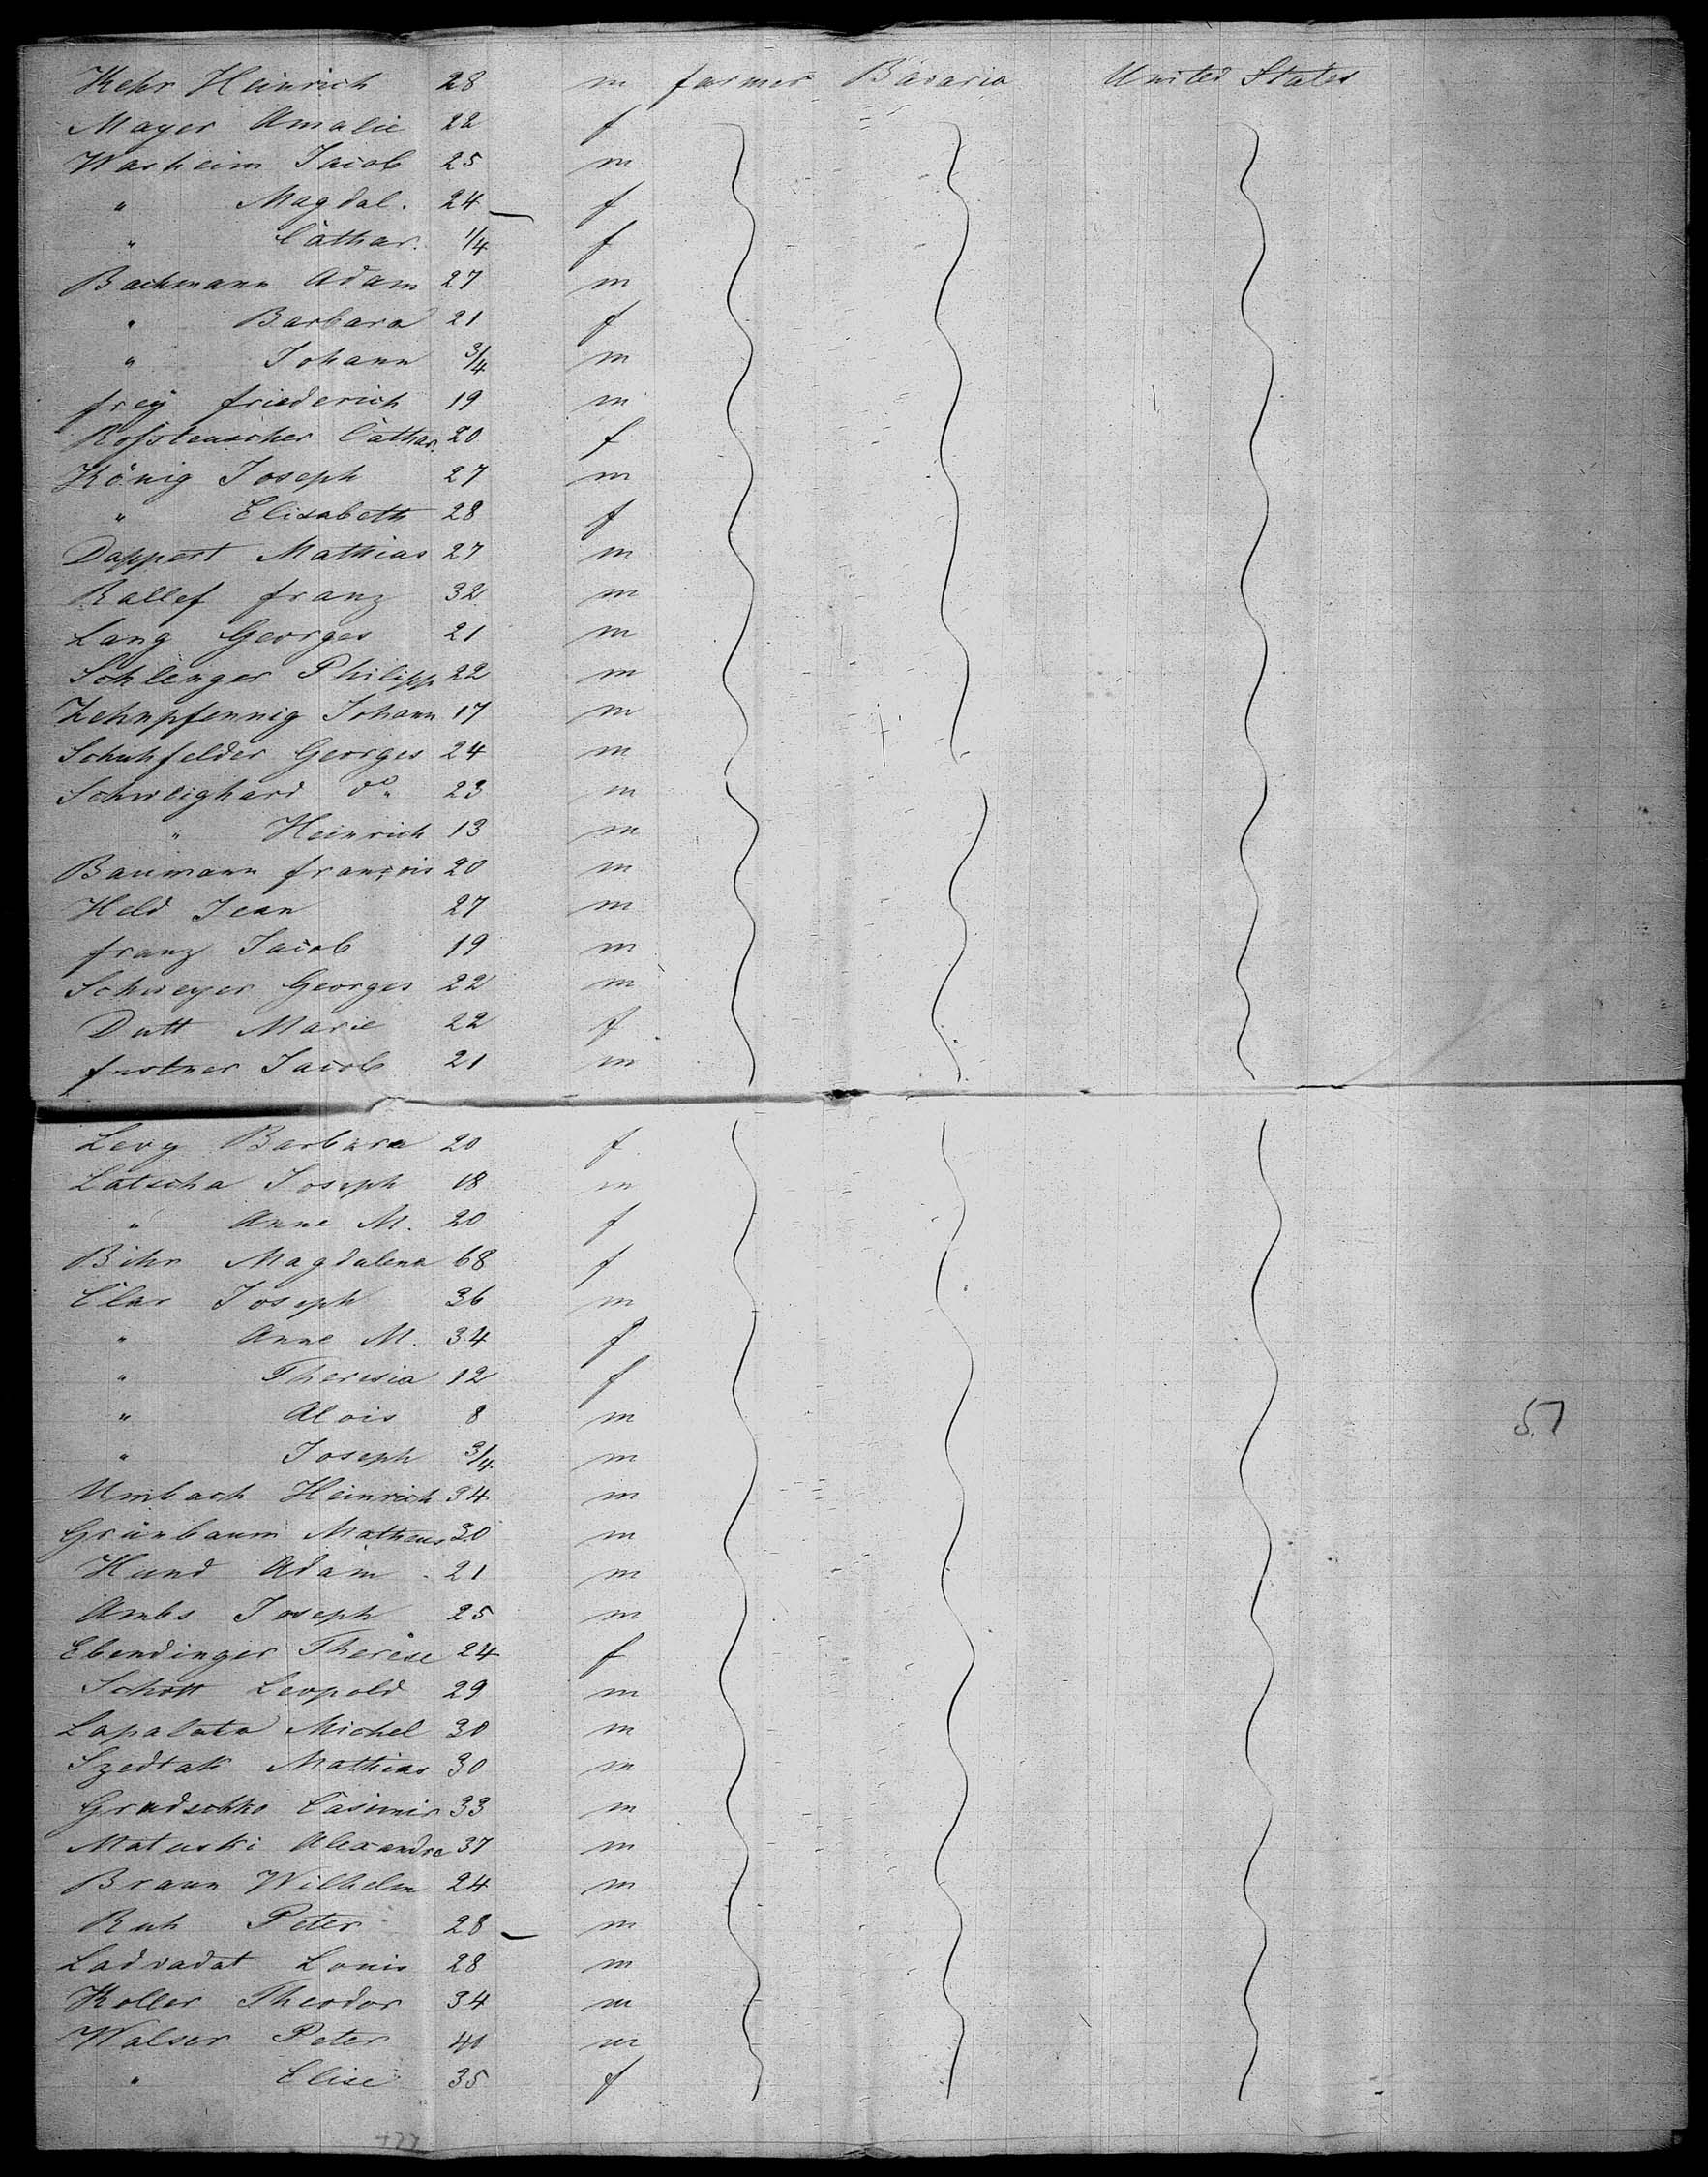 Kehr Heinrich 28 m farmer Bavaria United States
Mayer Amalie 22 f
Washeim Jacob 25 m
" Magdal. 24 f
" Cathar. 1/4 f
Bachmann Adam 27 m
" Barbara 21 f
" Johann 3/4 m
frey friederich 19 m
Rossteuscher Cathar. 20 f
König Joseph 27 m
" Elisabeth 28 f
Dappert Mathias 27 m
Rallef franz 32 m
Lang Georges 21 m
Schlenger Philipp 22 m
Zehnpfennig Johann 17 m
Schuhfelder Georges 24 m
Schweighard do. 23 m
" Heinrich 13 m
Baumann françois 20 m
Held Jean 27 m
franz Jacob 19 m
Schweyer Georges 22 m
Dutt Marie 22 f
fustner Jacob 21 m
Levy Barbara 20 f
Latscha Joseph 18 m
" Anne M. 20 f
Bihr Magdalena 68 f
Clar Joseph 36 m
" Anne M. 34 f
" Theresia 12 f
" Alois 8 m
" Joseph 3/4 m
57
Umbach Heinrich 34 m
Grünbaum Matheus 30 m
Hund Adam 21 m
Ambs Joseph 25 m
Ebendinger Therèse 24 f
Schott Leopold 29 m
Lapaluta Michel 30 m
Szedtak Mathias 30 m
Gradschko Casimir 33 m
Matuski Alexandre 37 m
Braun Wilhelm 24 m
Ruh Peter 28 m
Ladvadat Louis 28 m
Koller Theodor 34 m
Walser Peter 40 m
" Elise 35 f